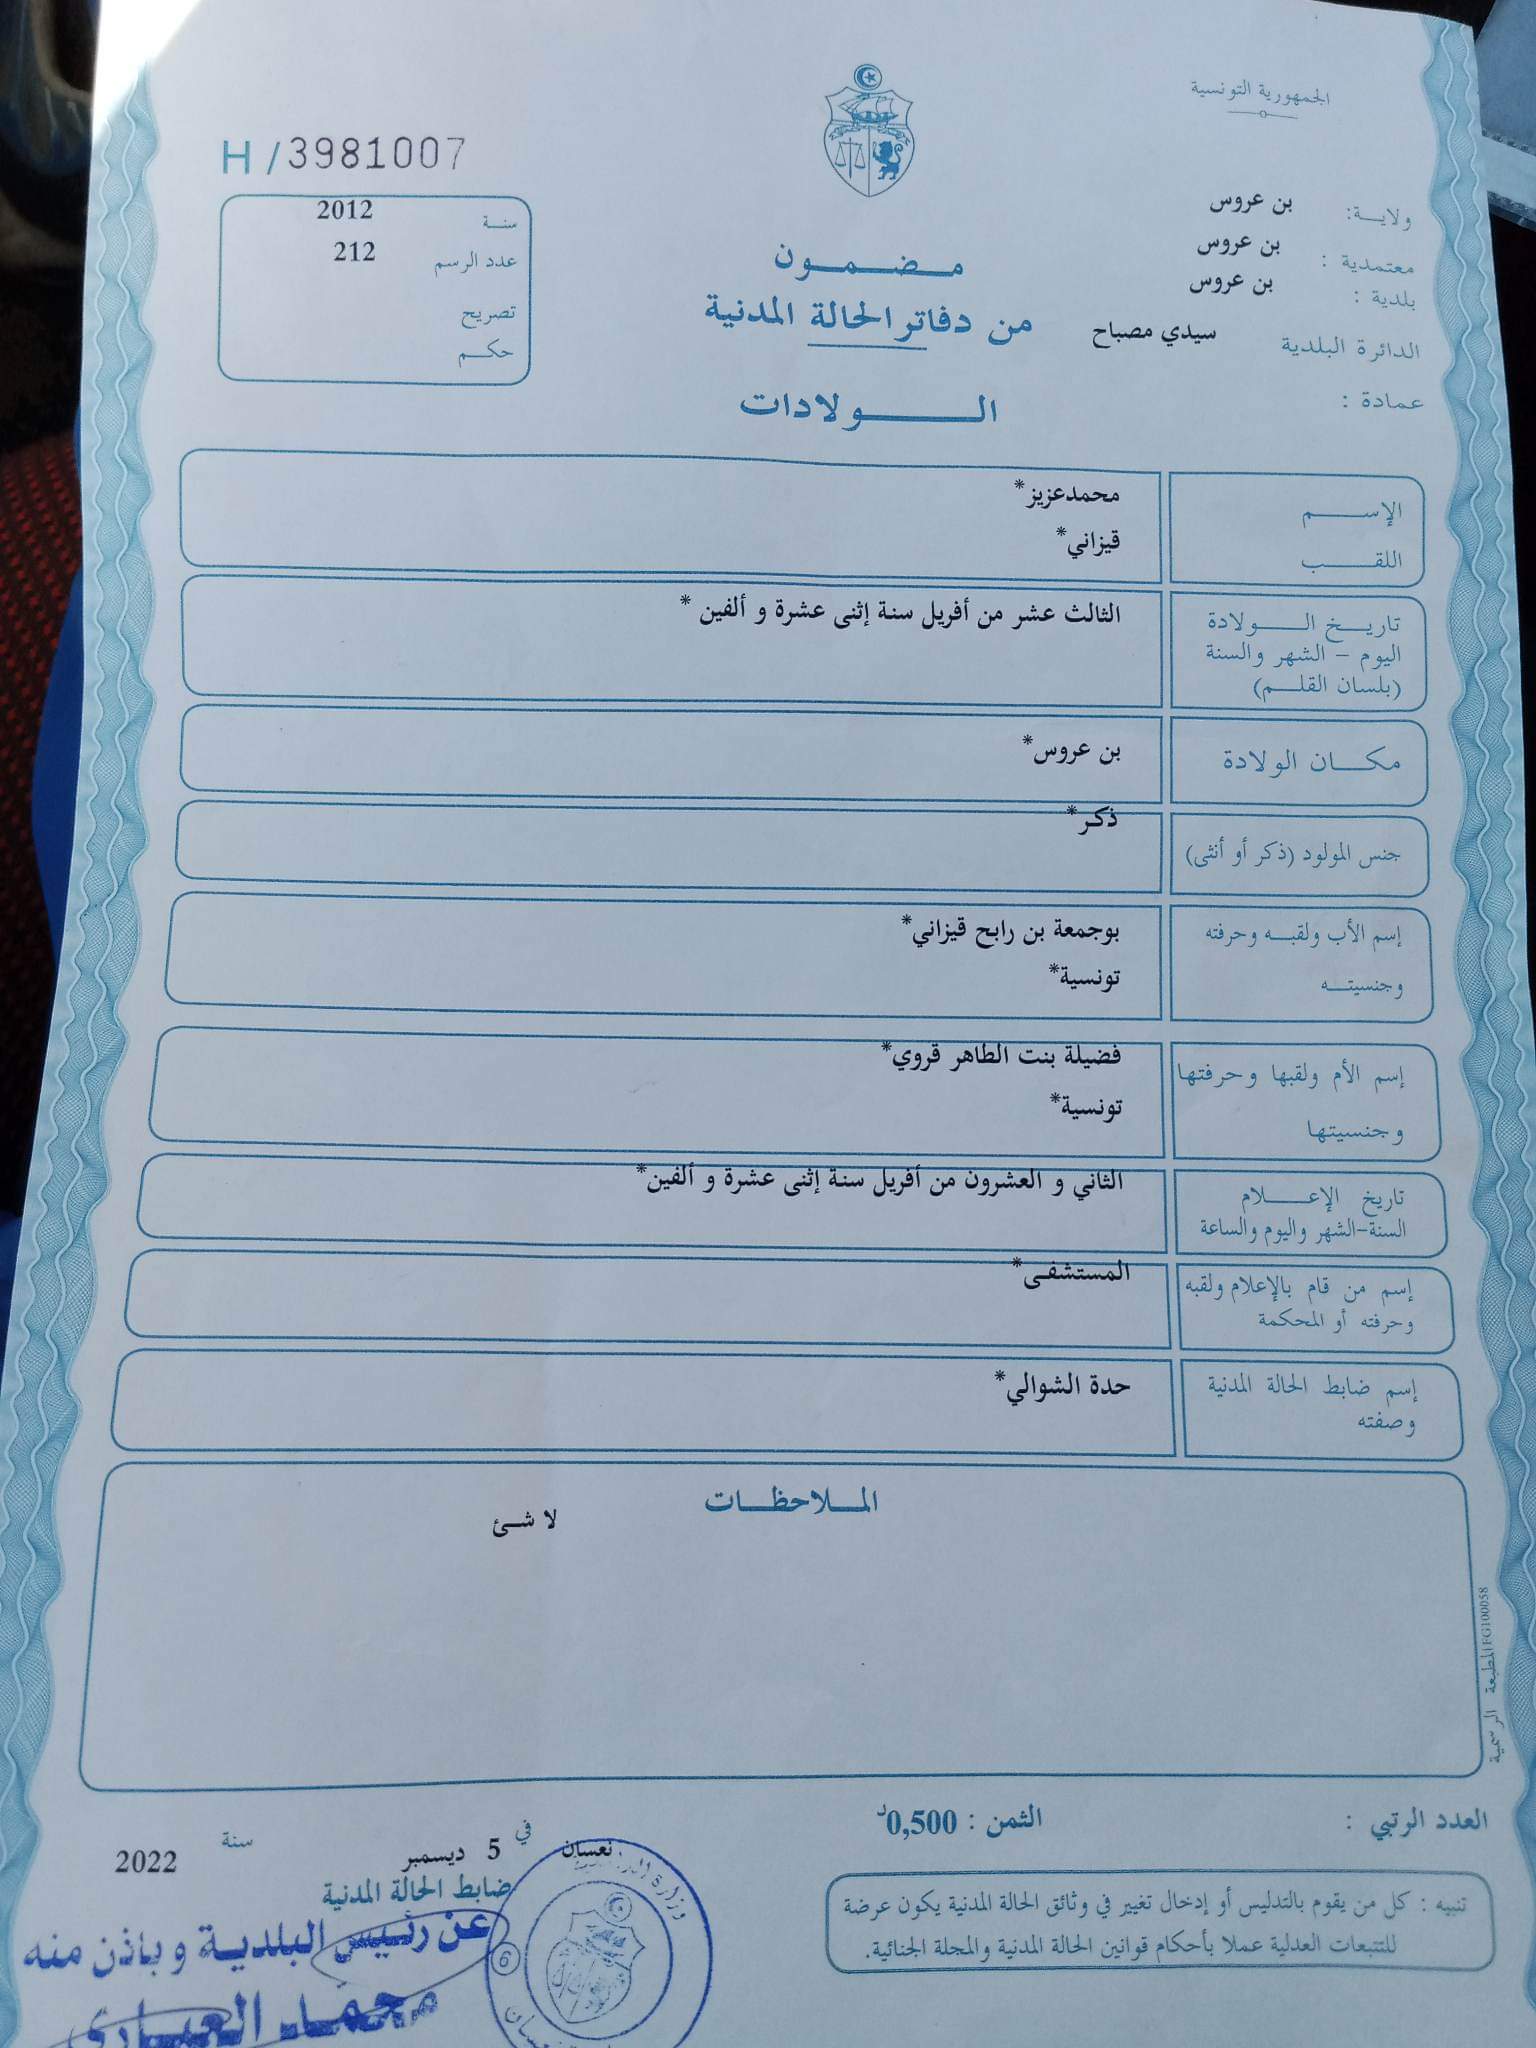 الجمهورية التونسية
ولاية: بن عروس
معتمدية : بن عروس
بلدية : بن عروس
الدائرة البلدية سيدي مصباح
عمادة :
مضمون
من دفاتر الحالة المدنية
الولادات
H / 3981007
سنة 2012
عدد الرسم 212
تصريح
حكم
الإسم محمدعزيز*
اللقب قيزاني*
تاريخ الولادة الثالث عشر من أفريل سنة إثنى عشرة و ألفين *
اليوم - الشهر والسنة
(بلسان القلم)
مكان الولادة بن عروس*
جنس المولود (ذكر أو أنثى) ذكر*
إسم الأب ولقبه وحرفته بوجمعة بن رابح قيزاني*
وجنسيته تونسية*
إسم الأم ولقبها وحرفتها فضيلة بنت الطاهر قروي*
وجنسيتها تونسية*
تاريخ الإعلام الثاني و العشرون من أفريل سنة إثنى عشرة و ألفين*
السنة-الشهر واليوم والساعة
إسم من قام بالإعلام ولقبه المستشفى*
وحرفته أو المحكمة
إسم ضابط الحالة المدنية حدة الشوالي*
وصفته
الملاحظات
لا شئ
المطبعة الرسمية FG100058
العدد الرتبي :
الثمن : 0,500د
تنبيه : كل من يقوم بالتدليس أو إدخال تغيير في وثائق الحالة المدنية يكون عرضة
للتتبعات العدلية عملا بأحكام قوانين الحالة المدنية والمجلة الجنائية.
نعسان في 5 ديسمبر سنة 2022
ضابط الحالة المدنية
عن رئيس البلدية وباذن منه
محمد العياري
وزارة
6
نعسان